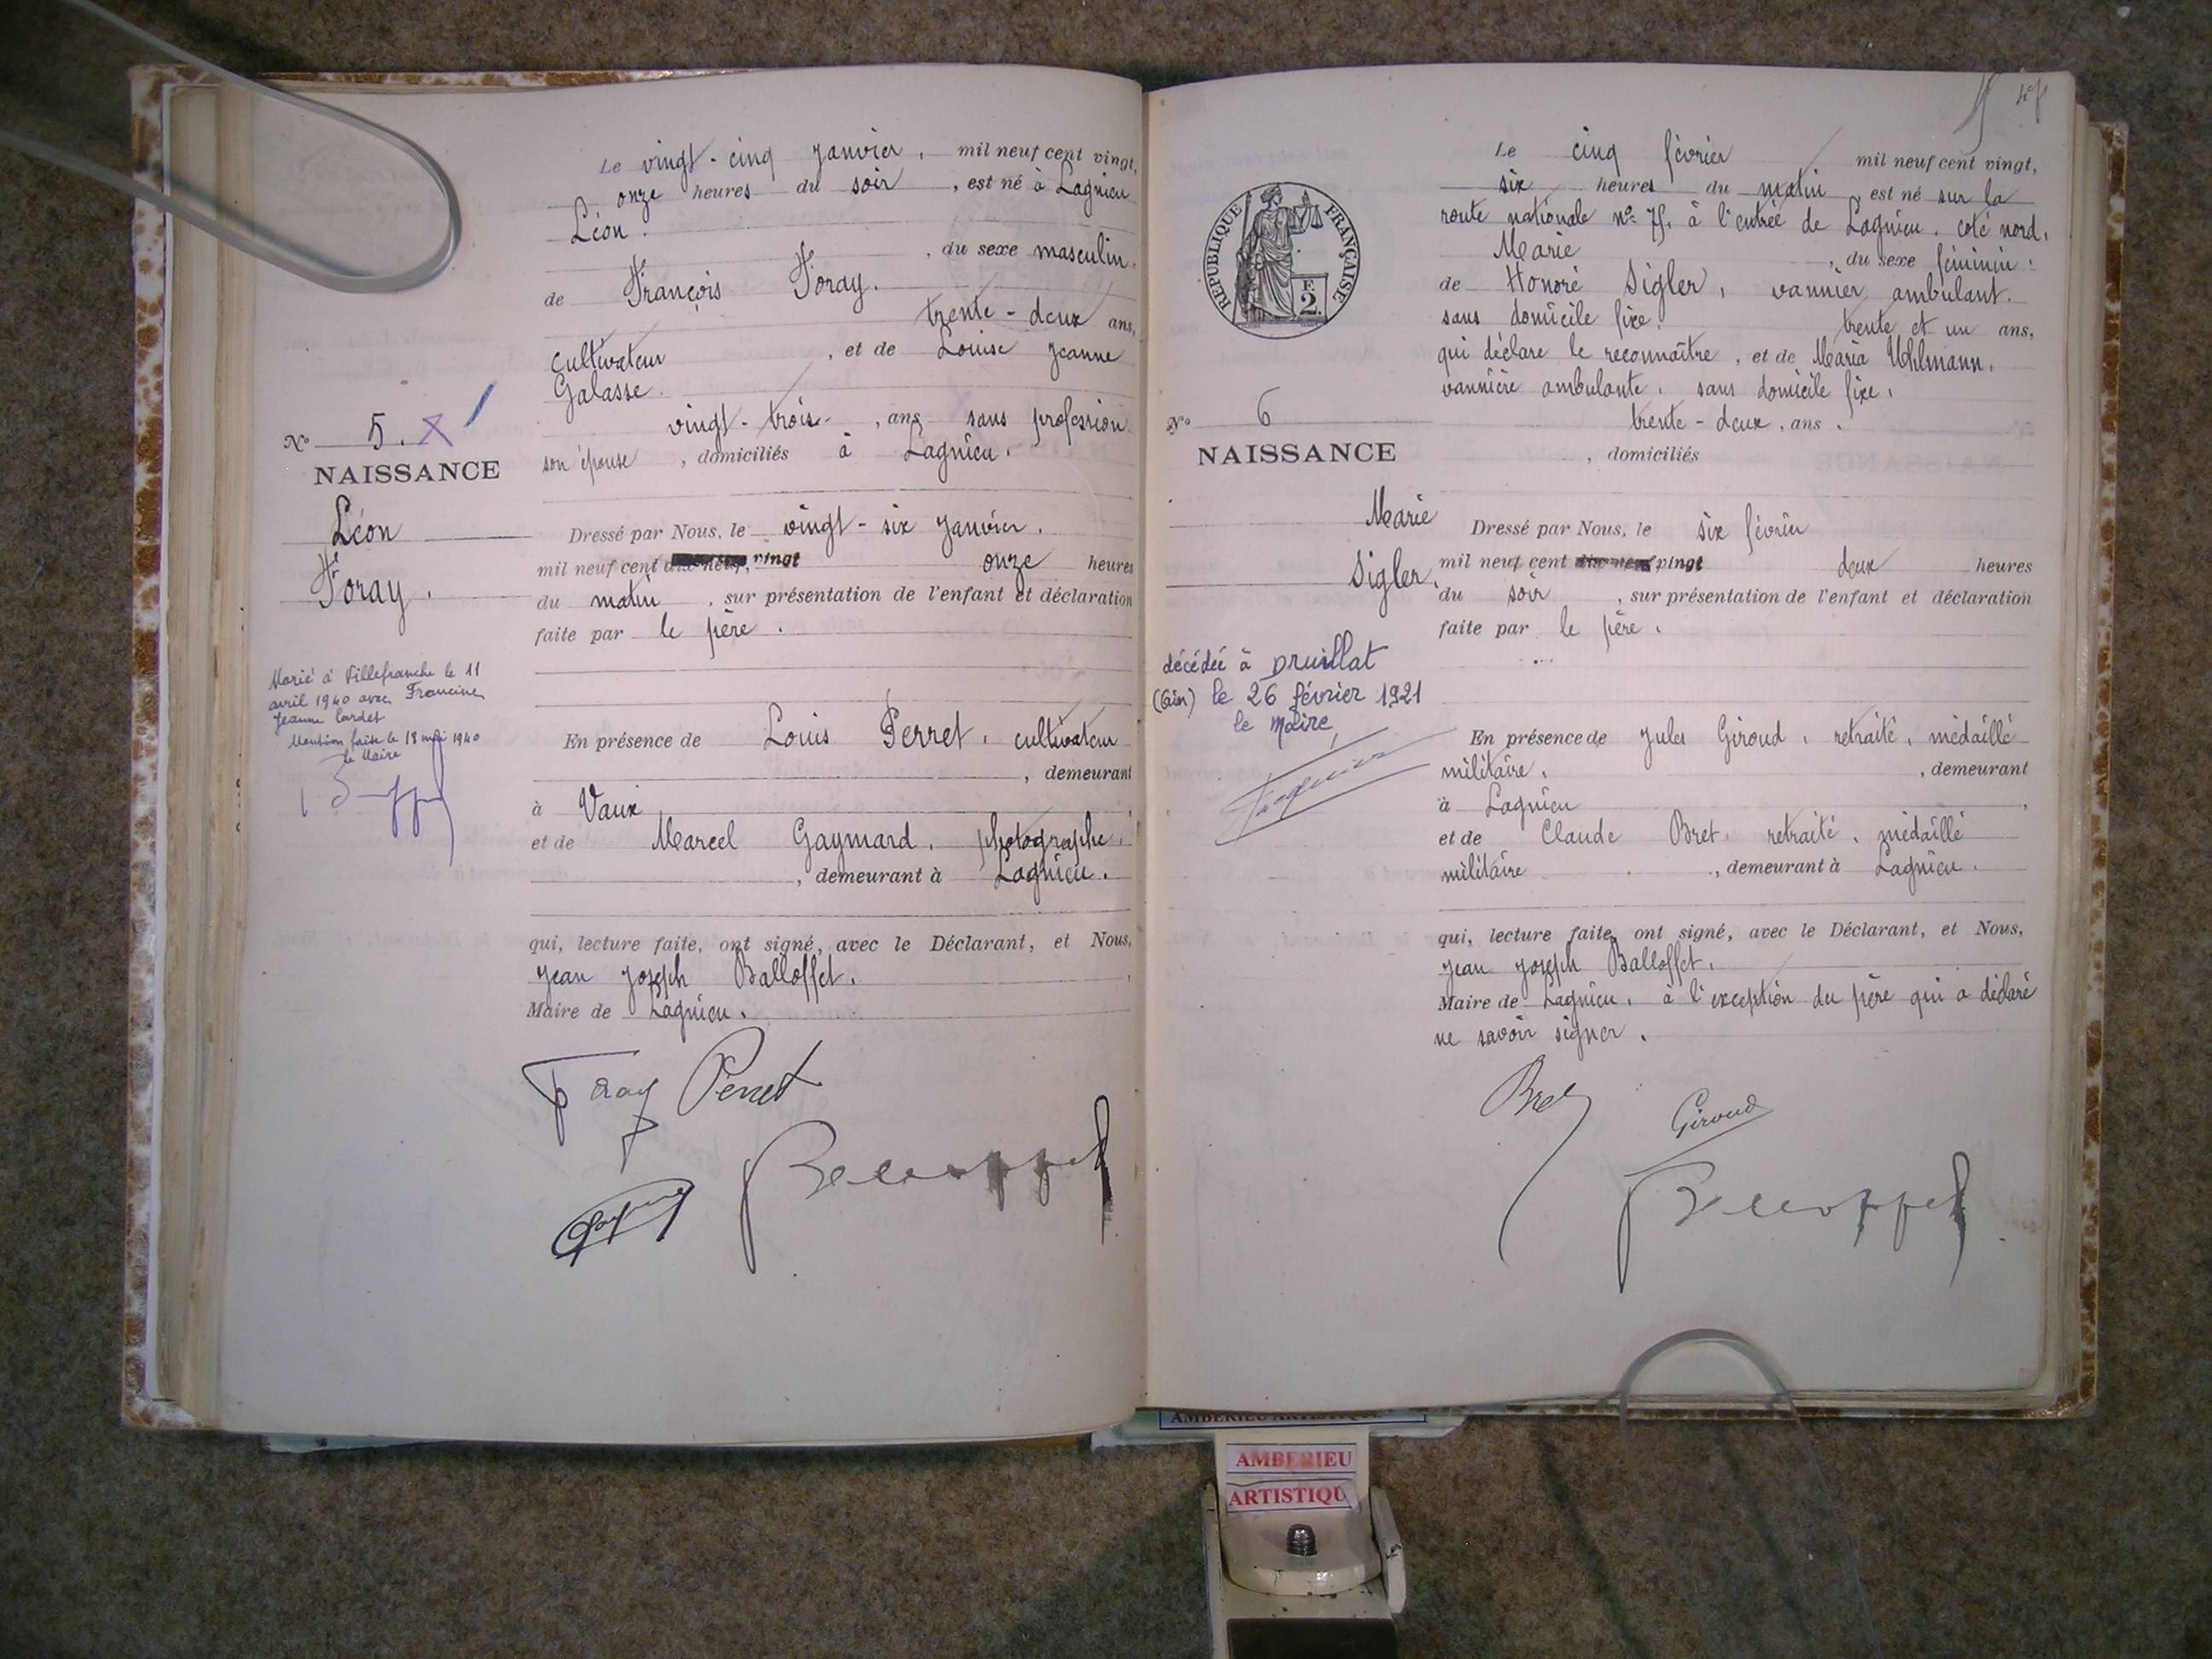 Le vingt-cinq Janvier, mil neuf cent vingt,
onze heures du soir, est né à Lagnieu
Léon.
, du sexe masculin.
de François Foray.
trente-deux ans,
cultivateur, et de Louise Jeanne
Galasse.
vingt-trois, ans sans profession
son épouse, domiciliés à Lagnieu.
No 5. X
NAISSANCE
Léon
Foray.
Marié à Villefranche le 11
avril 1940 avec Francine
Jeanne Cardet
Mention faite le 18 mai 1940
le Maire
Dressé par Nous, le vingt-six Janvier.
mil neuf cent vingt onze heures
du matin, sur présentation de l'enfant et déclaration
faite par le père.
En présence de Louis Perret, cultivateur
, demeurant
à Vaux
et de Marcel Gaymard, photographe.
, demeurant à Lagnieu.
qui, lecture faite, ont signé, avec le Déclarant, et Nous,
Jean Joseph Balloffet.
Maire de Lagnieu.
Foray Perret
Balloffet
Le cinq février mil neuf cent vingt,
six heures du matin, est né sur la
route nationale no 75, à l'entrée de Lagnieu. coté nord.
Marie, du sexe féminin.
de Honoré Sigler, vannier ambulant.
sans domicile fixe. trente et un ans,
qui déclare le reconnaître, et de Maria Uhlmann.
vannière ambulante, sans domicile fixe,
trente-deux, ans.
, domiciliés
RÉPUBLIQUE FRANÇAISE
F.
2.
No 6
NAISSANCE
Marie
Sigler.
décédée à Druillat
(Ain) le 26 février 1921
le Maire,
Dressé par Nous, le six février
mil neuf cent vingt deux heures
du soir, sur présentation de l'enfant et déclaration
faite par le père.
En présence de Jules Giroud, retraité, médaillé
militaire, demeurant
à Lagnieu
et de Claude Bret. retraité, médaillé
militaire, demeurant à Lagnieu.
qui, lecture faite, ont signé, avec le Déclarant, et Nous,
Jean Joseph Balloffet.
Maire de Lagnieu, à l'exception du père qui a déclaré
ne savoir signer.
Bret
Giroud
Balloffet
AMBERIEU ARTISTIQUE
AMBERIEU
ARTISTIQU